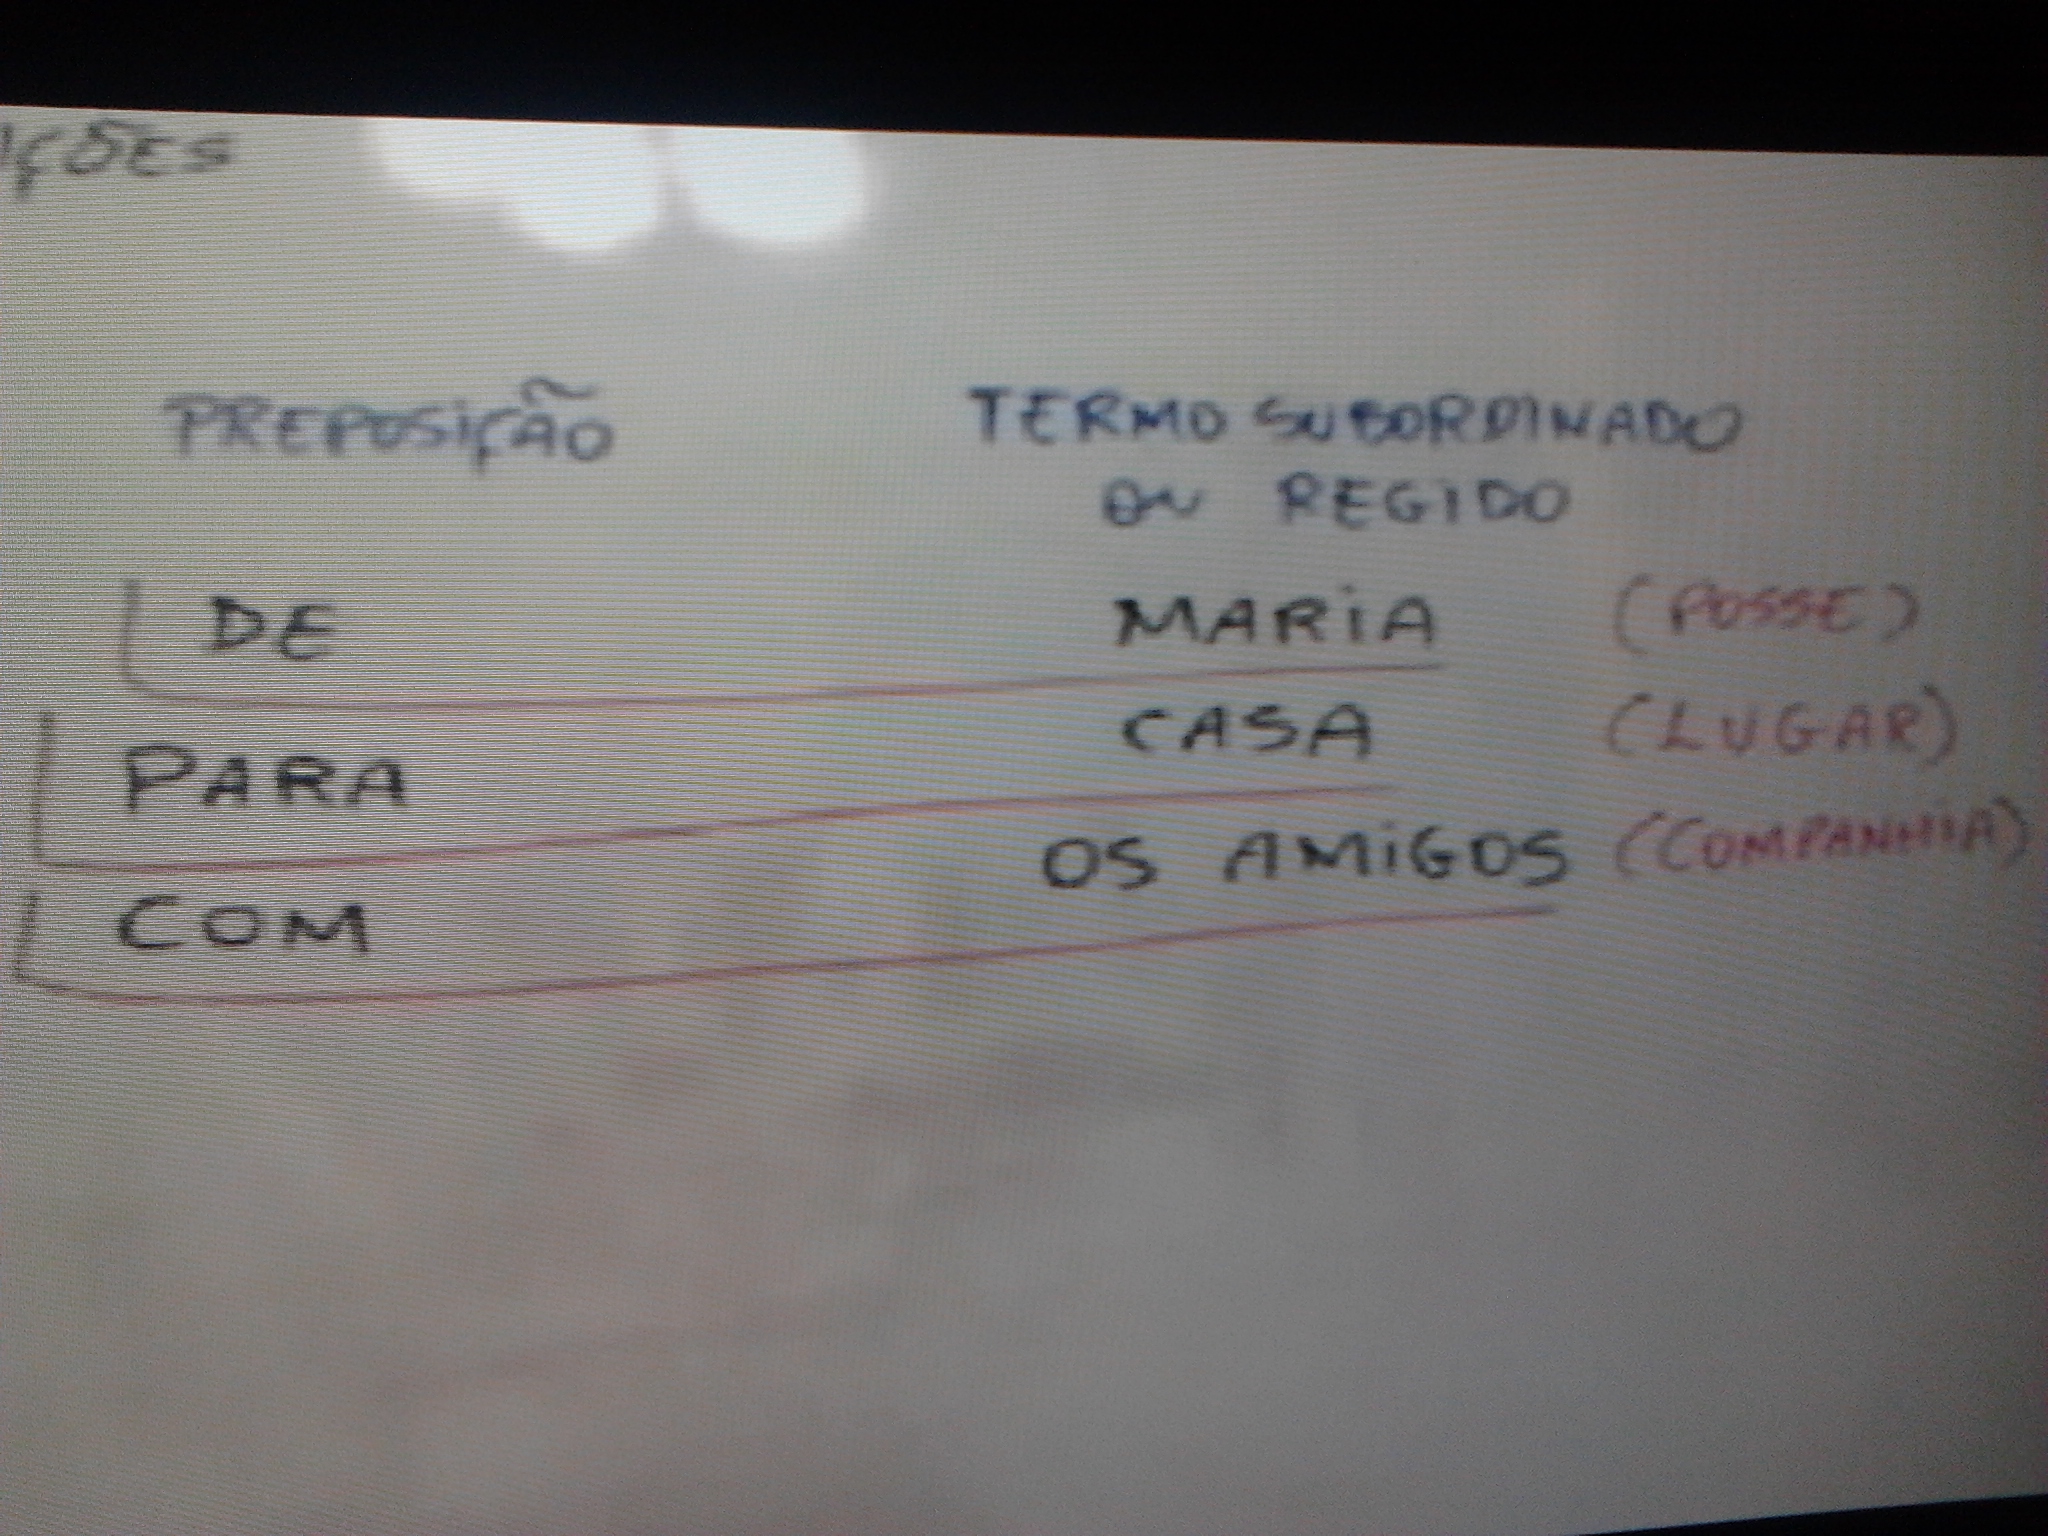 IÇÕES
PREPOSIÇÃO TERMO SUBORDINADO
OU REGIDO
DE MARIA (POSSE)
PARA CASA (LUGAR)
COM OS AMIGOS (COMPANHIA)